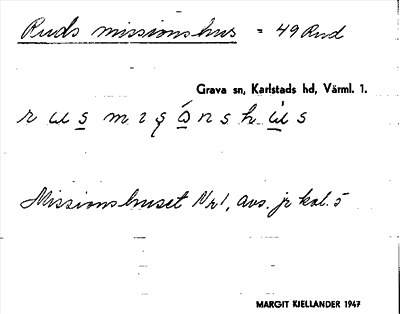 Ruds missionshus = 49 Rud
Grava sn, Karlstads hd, Värml. 1.
Missionshuset Nr 1, avs. jr kol. 5
MARGIT KJELLANDER 1947